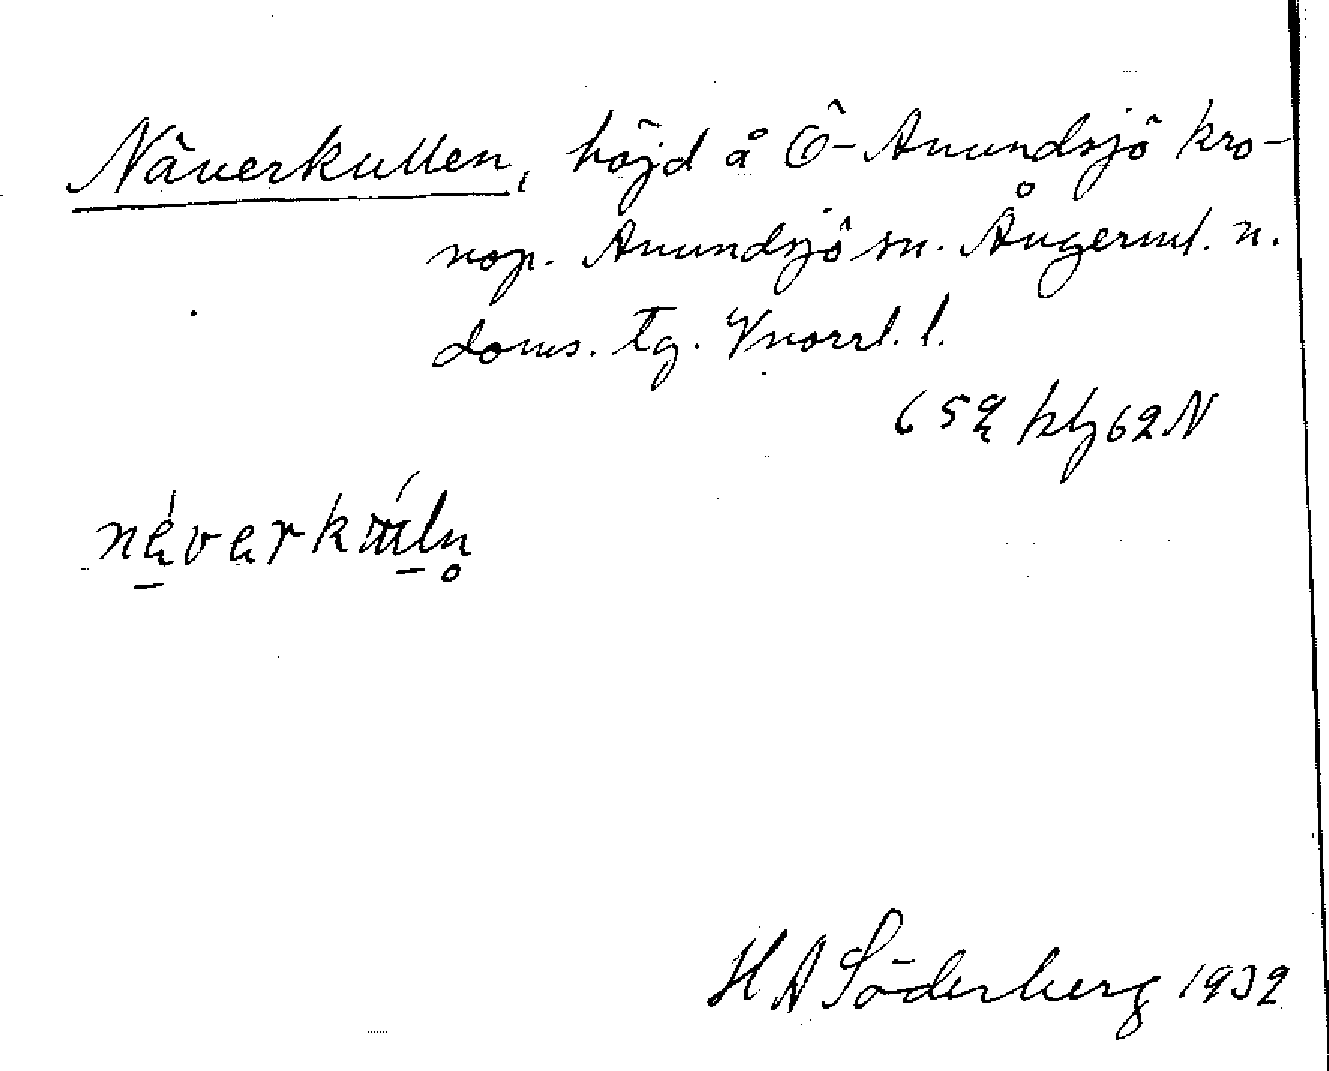 Näverkullen, höjd å Ö-Anundsjö kro-
nop. Anundsjö sn. Ångerml. n.
doms. tg. Vnorrl. l.
65 62N
H A Söderberg 1932